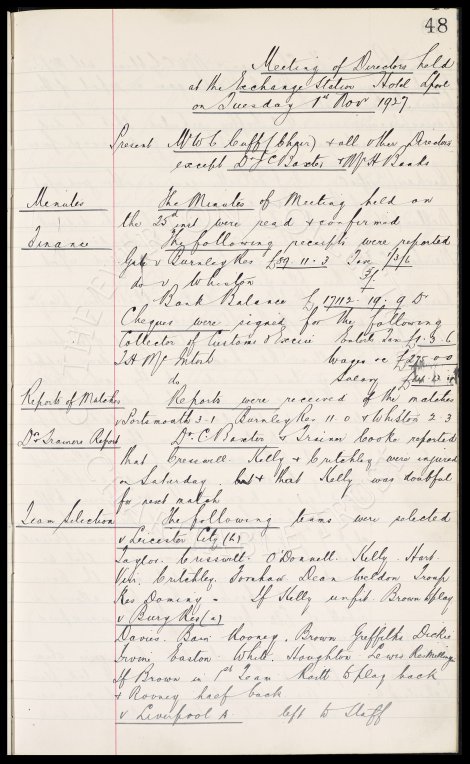 48
Meeting of Directors held
at the Exchange Station Hotel Lpool
on Tuesday 1st Nov 1927.
Present Mr W C Cuff (Chair) & all other Directors
except Dr J C Baxter & Mr H Banks
Minutes The Minutes of Meeting held on
the 25th inst were read & confirmed
Finance The following receipts were reported
Gate v Burnley Res £59 11. 3 Tax 7/3/6
do v Whiston 5/-
Bank Balance £17112. 19. 9 Dr
Cheques were signed for the following
Collector of Customs & Excise Enterts Tax £7. 3. 6
T H McIntosh Wages &c £275 0 0
do Salary
Reports of Matches Reports were received of the matches
v Portsmouth 3-1 Burnley Res 11-0 & Whiston 2-3
Drs Trainers Report Dr. C. Baxter & Trainer Cooke reported
that Cresswell Kelly & Critchley were injured
on Saturday. & that Kelly was doubtful
for next match
Team Selection The following teams were selected
v Leicester City (h)
Taylor. Cresswell. O'Donnell. Kelly. Hart.
Virr, Critchley. Forshaw Dean Weldon Troup
Res Dominy - If Kelly unfit Brown to play
v Bury Res (a)
Davies. Bain Rooney. Brown Griffiths Dickie
Irvine Easton. White. Houghton Lewis Res
If Brown in 1st Team to play back
& Rooney half back
v Liverpool A left to Staff